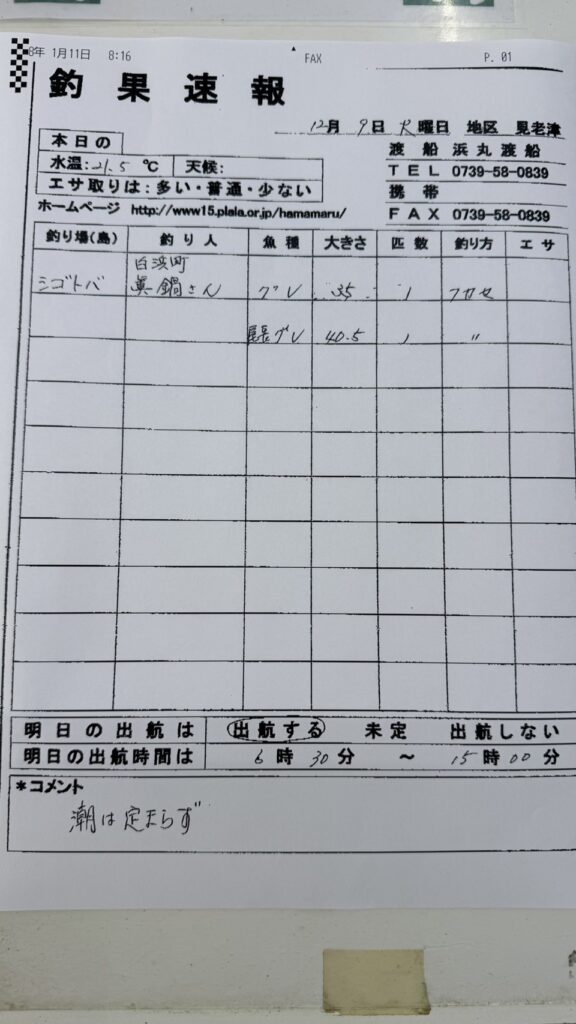 8年 1月11日 8:16 FAX P. 01
釣果速報
12月 9日 火曜日 地区 見老津
本日の
水温:21.5 ℃ 天候:
エサ取りは:多い・普通・少ない
渡船 浜丸渡船
TEL 0739-58-0839
携帯
FAX 0739-58-0839
ホームページ http://www15.plala.or.jp/hamamaru/
釣り場(島) 釣り人 魚種 大きさ 匹数 釣り方 エサ
白浜町
シゴトバ 真鍋さん グレ 35 1 フカセ
尾長グレ 40.5 1 〃
明日の出航は 出航する 未定 出航しない
明日の出航時間は 6時30分 ～ 15時00分
*コメント
潮は定まらず